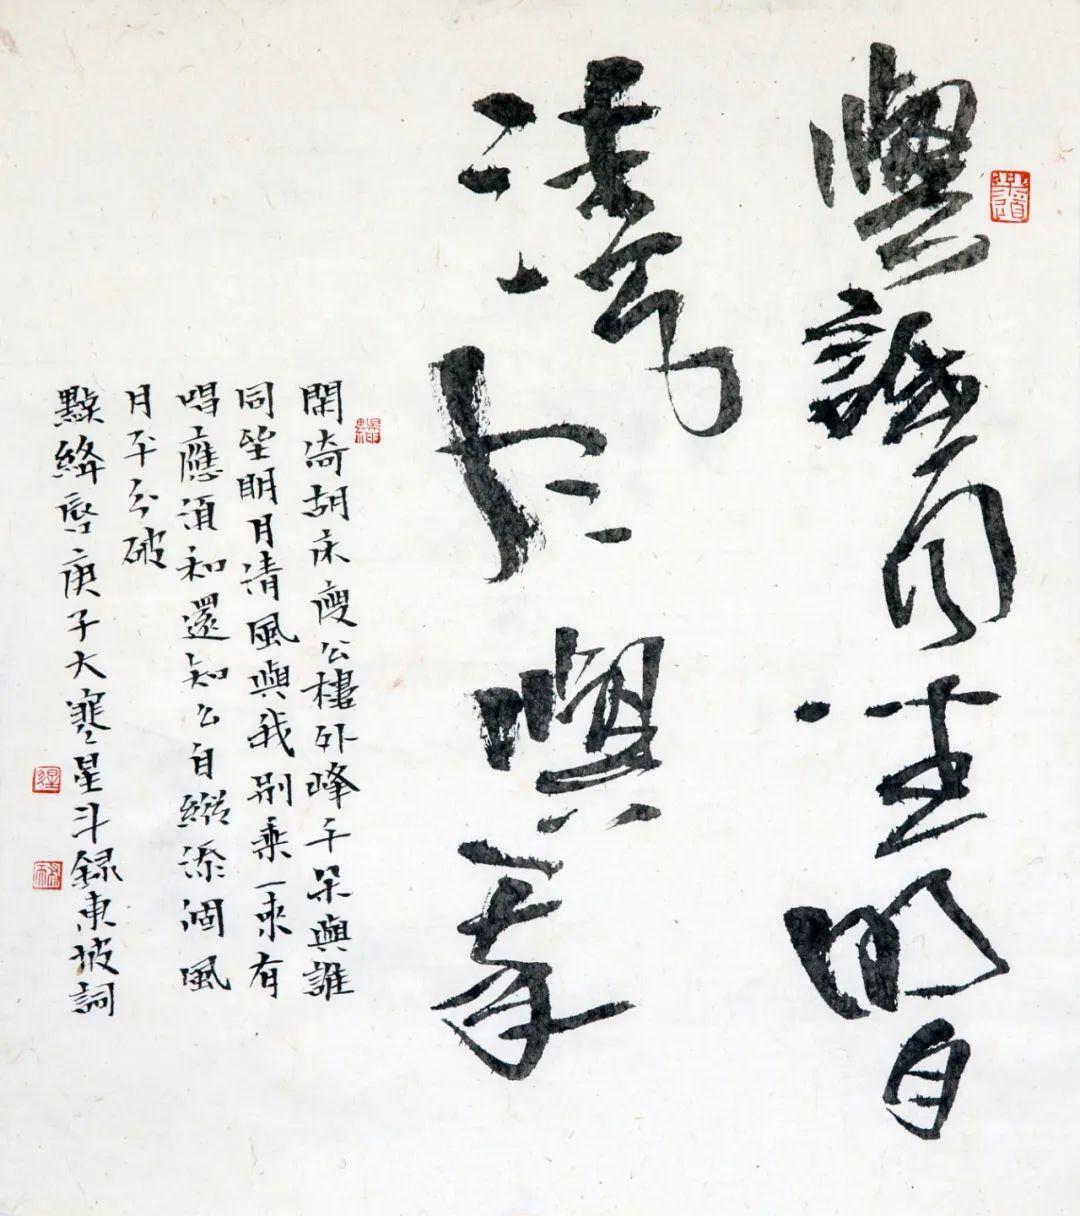 與誰同坐明月
清風與我
閑倚胡床庾公樓外峰千朵與誰
同坐明月清風與我別乘一來有
唱應須和還知么自縱添個風
月平分破
點絳唇庚子大寒星斗錄東坡詞